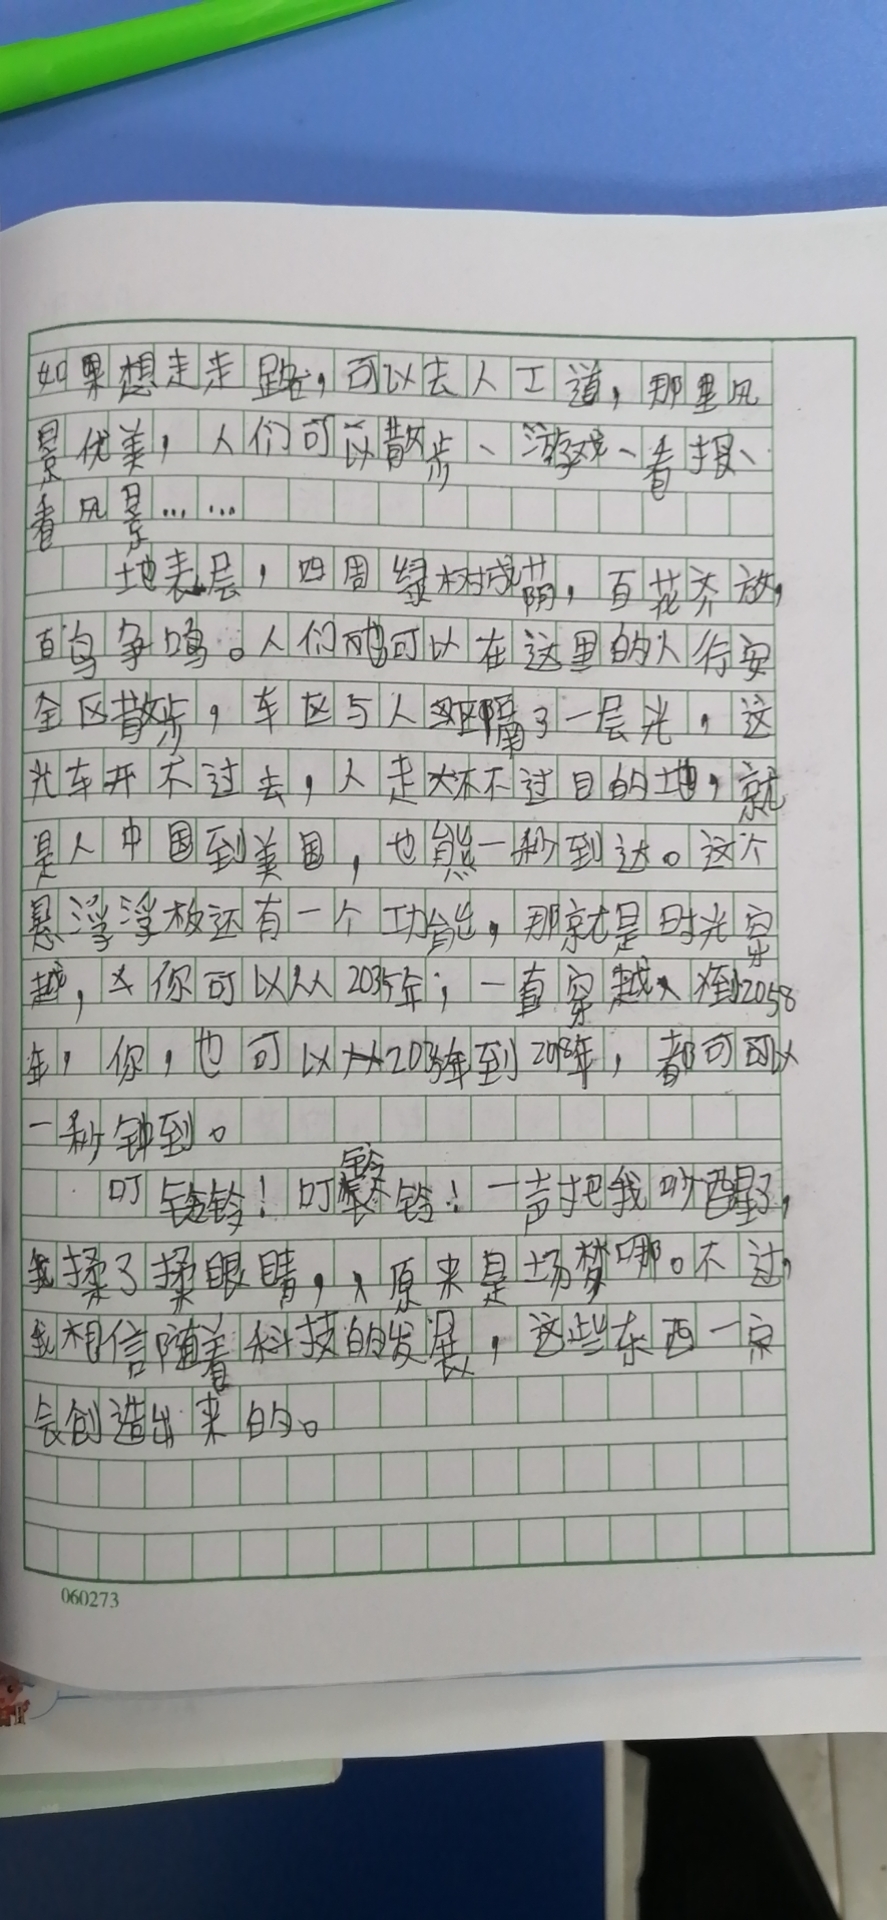 如果想走走路，可以去人工道，那里风
景优美，人们可以散步、游戏、看报、
看风景……
地表层，四周绿树成荫，百花齐放，
百鸟争鸣。人们可以在这里的人行安
全区散步，车区与人区隔了一层光，这
光车开不过去，人走不过目的地，就
是人中国到美国，也能一秒到达。这个
悬浮浮板还有一个功能，那就是时光穿
越，你可以从2035年；一直穿越到2058
年，你，也可以从2035年到，都可以
一秒钟到。
叮铃铃！叮铃铃！一声把我吵醒了，
我揉了揉眼睛，原来是场梦哪。不过，
我相信随着科技的发展，这些东西一点
会创造出来的。
060273